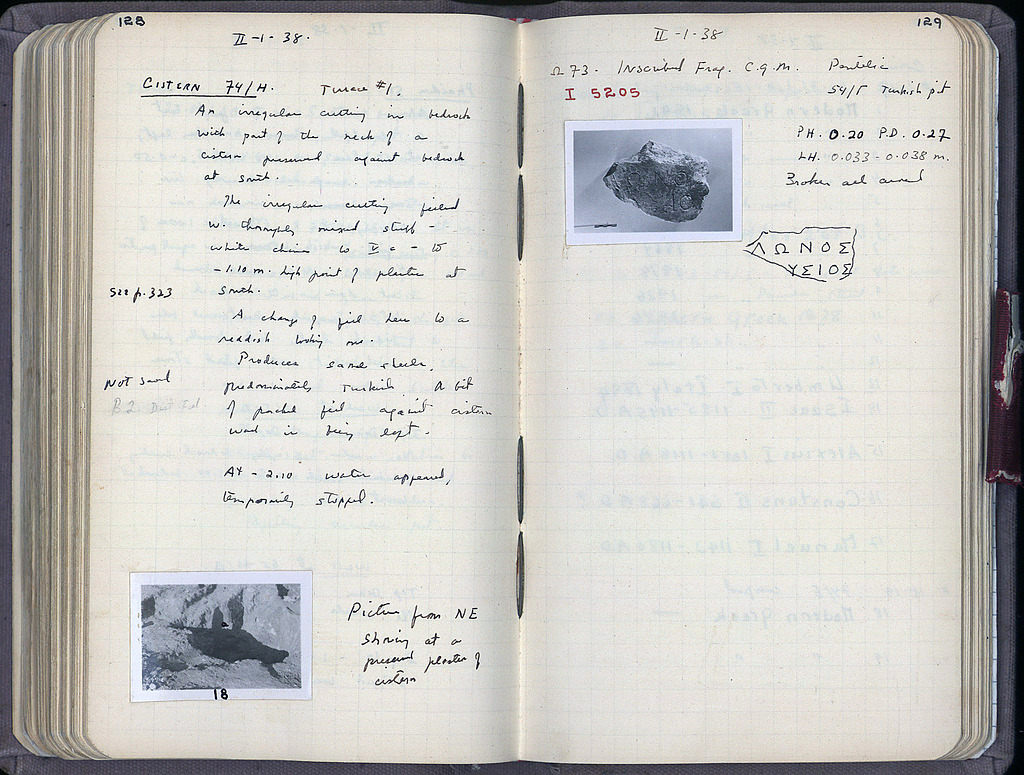 128
II-1-38.
CISTERN 74/H. Terrace #1
An irregular cutting in bedrock
with part of the neck of a
cistern preserved against bedrock
at south.
The irregular cutting filled
w. thoroughly mixed stuff -
to
-1.10 m. high point of plaster at
See p. 323
south.
A change of fill here to a
reddish looking one.
Produces same sherds,
Not saved
predominately Turkish. A bit
of packed fill against cistern
wall is being left.
At -2.10 water appeared,
temporarily stopped.
18
Picture from NE
showing at a
preserved plaster of
cistern
129
II-1-38
Ω 73. Inscribed Frag. C.g.m. Pentelic
I 5205
54/Γ Turkish pit
PH. 0.20 P.D. 0.27
LH. 0.033-0.038 m.
Broken all around
ΛΩΝΟΣ
ΥΣΙΟΣ